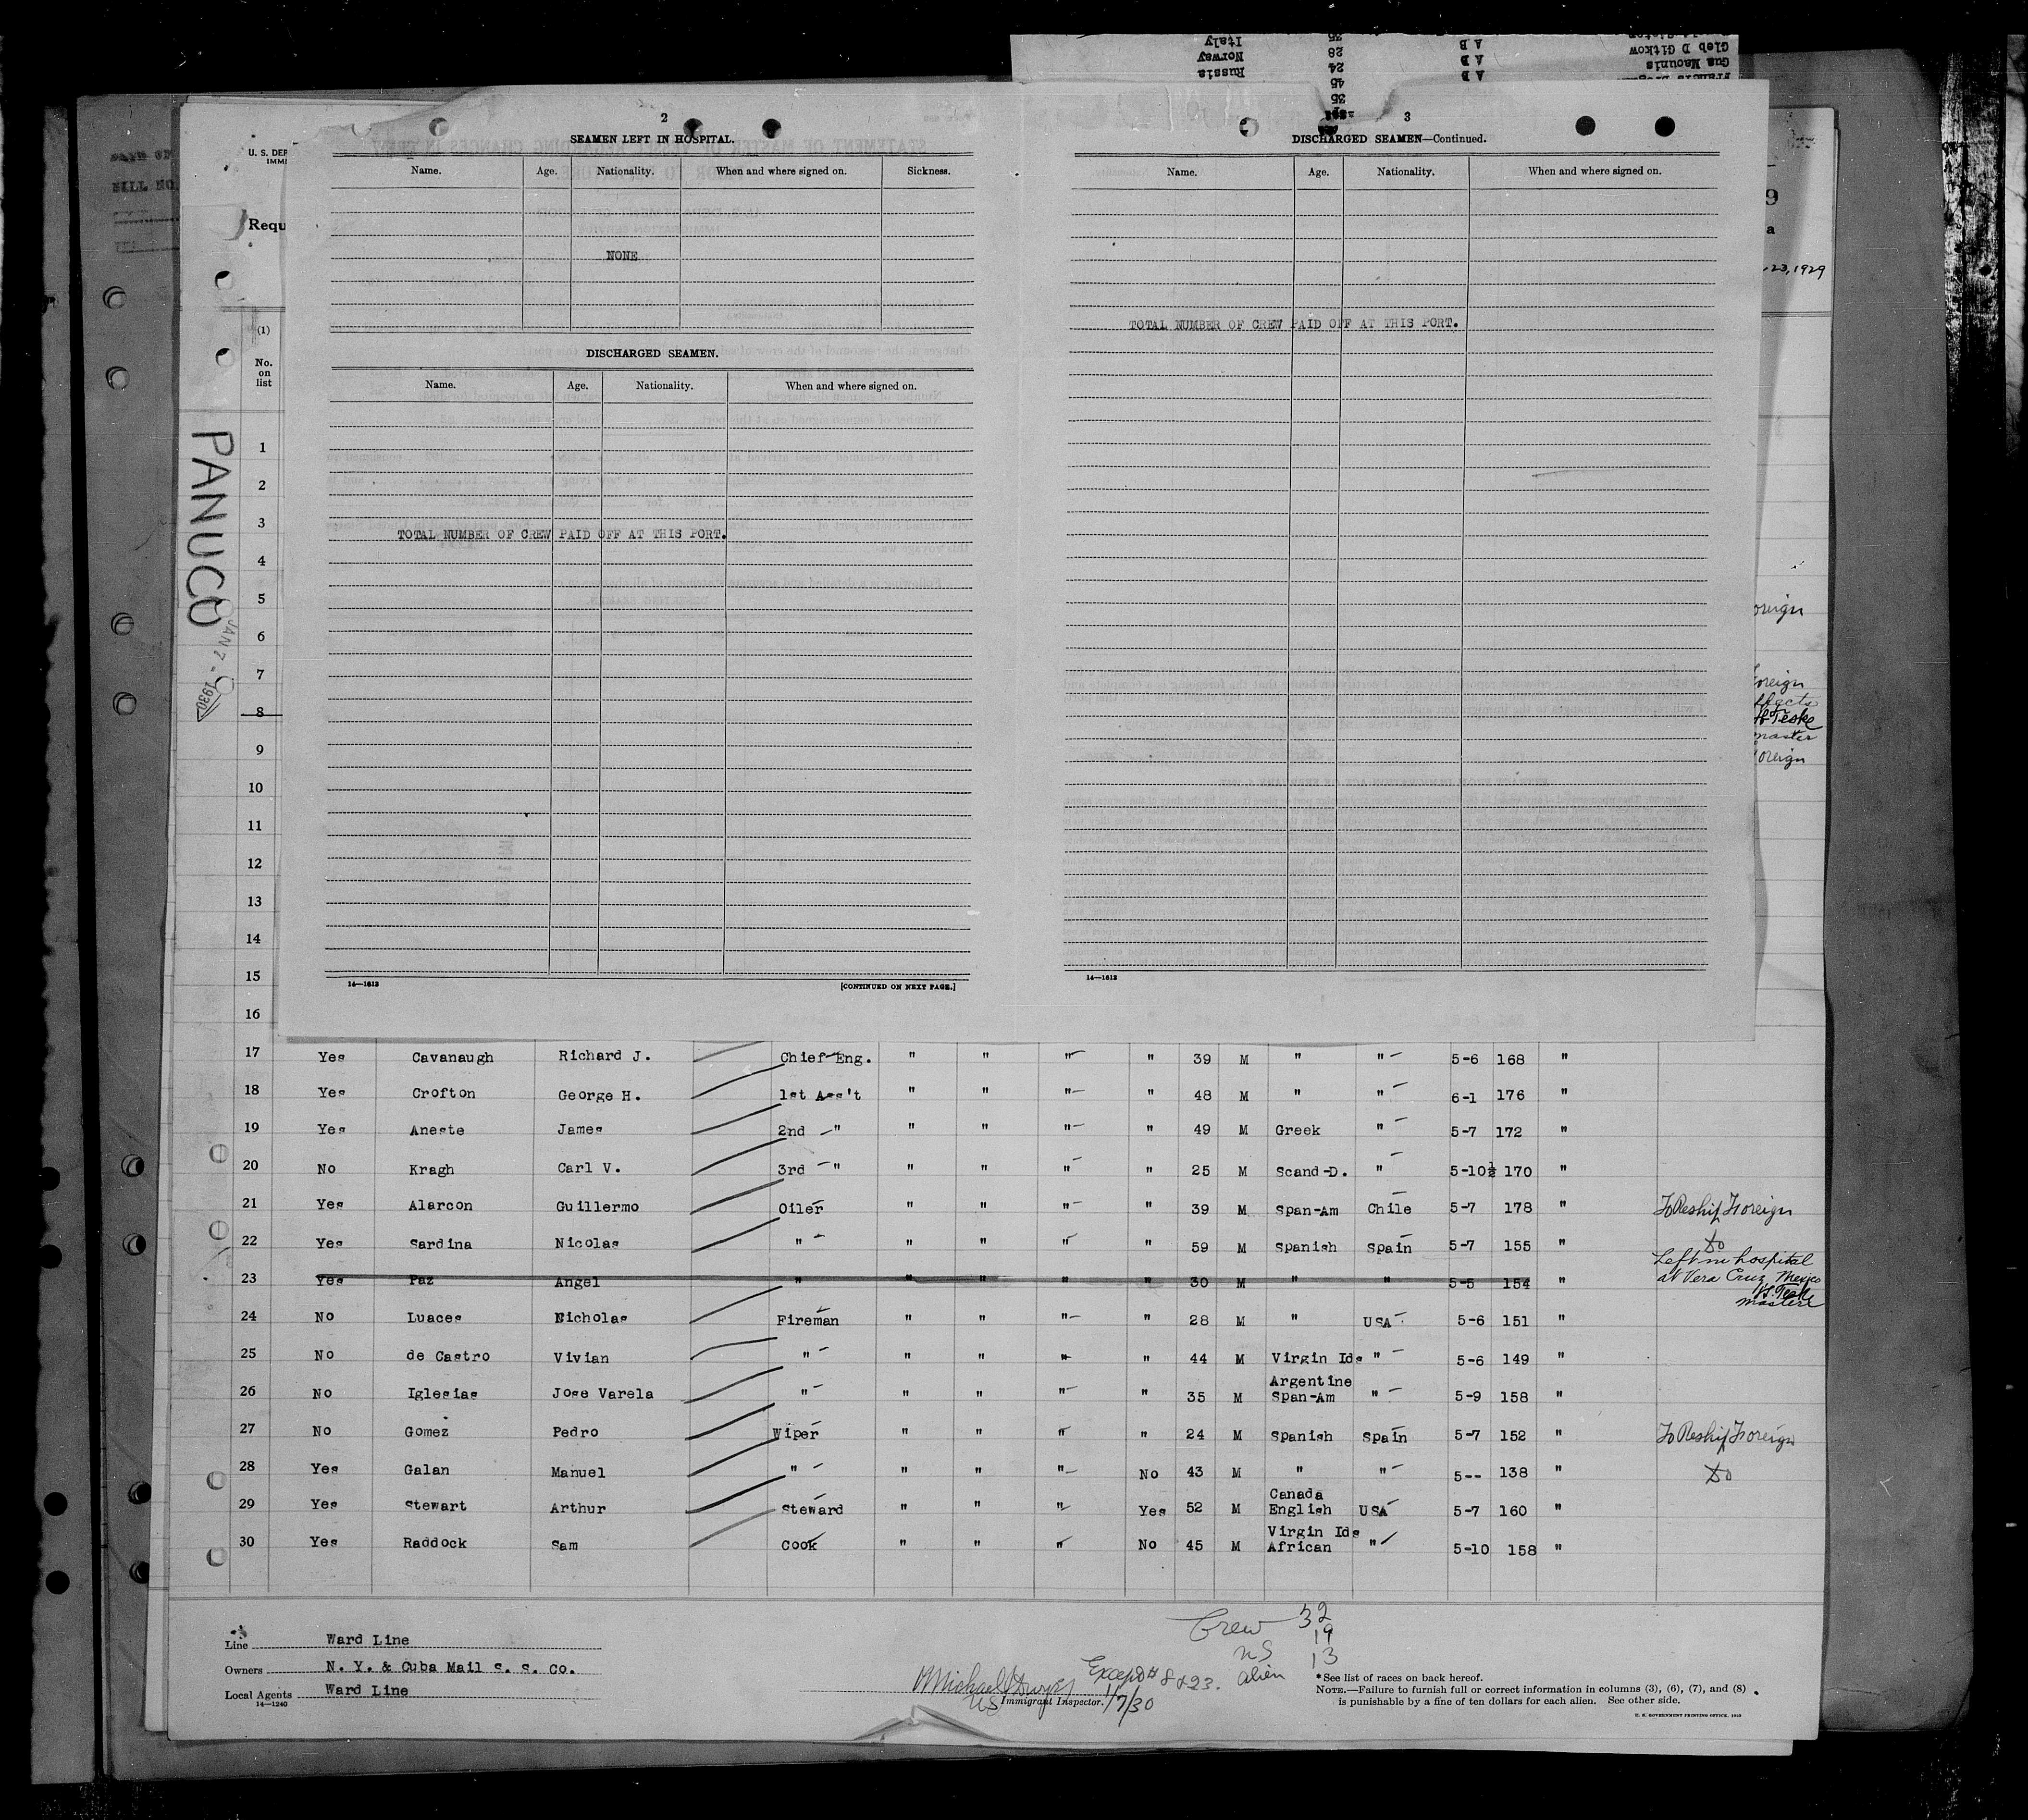 Italy 28 A B
Norway 24 A B
Russia 45 A B
35
Gleb D Gitkow
Gus Maounis
U. S. DEP
IMMI
Requ
(1)
No.
on
list
PANUCO
JAN 7 - 1930
9
a
23, 1929
2
SEAMEN LEFT IN HOSPITAL.
Name. Age. Nationality. When and where signed on. Sickness.
NONE
DISCHARGED SEAMEN.
Name. Age. Nationality. When and where signed on.
TOTAL NUMBER OF CREW PAID OFF AT THIS PORT.
14—1613 [CONTINUED ON NEXT PAGE.]
3
DISCHARGED SEAMEN—Continued.
Name. Age. Nationality. When and where signed on.
TOTAL NUMBER OF CREW PAID OFF AT THIS PORT.
14—1613
1
2
3
4
5
oreign
6
7
oreign
ffects
8
Teske
master
9
oreign
10
11
12
13
14
15
16
17 Yes Cavanaugh Richard J. Chief Eng. " " " " 39 M " " 5-6 168 "
18 Yes Crofton George H. 1st Ass't " " " " 48 M " " 6-1 176 "
19 Yes Aneste James 2nd " " " " " 49 M Greek " 5-7 172 "
20 No Kragh Carl V. 3rd " " " " " 25 M Scand-D. " 5-10½ 170 "
21 Yes Alarcon Guillermo Oiler " " " " 39 M Span-Am Chile 5-7 178 " To Reship Foreign
22 Yes Sardina Nicolas " " " " " 59 M Spanish Spain 5-7 155 " Do
23 Yes Paz Angel " " " " " 30 M " " 5-5 154 " Left in hospital
at Vera Cruz, Mexico
master
24 No Luaces Nicholas Fireman " " " " 28 M " USA 5-6 151 "
25 No de Castro Vivian " " " " " 44 M Virgin Ids " 5-6 149 "
26 No Iglesias Jose Varela " " " " " 35 M Argentine
Span-Am " 5-9 158 "
27 No Gomez Pedro Wiper " " " " 24 M Spanish Spain 5-7 152 " To Reship Foreign
28 Yes Galan Manuel " " " " No 43 M " " 5-- 138 " Do
29 Yes Stewart Arthur Steward " " " Yes 52 M Canada
English USA 5-7 160 "
30 Yes Raddock Sam Cook " " " No 45 M Virgin Ids
African " 5-10 158 "
Line Ward Line
Owners N. Y. & Cuba Mail S. S. Co.
Local Agents Ward Line
14—1240
Crew 32
US 19
alien 13
Except # 8 & 23.
US Immigrant Inspector. 1/7/30
*See list of races on back hereof.
NOTE.—Failure to furnish full or correct information in columns (3), (6), (7), and (8)
is punishable by a fine of ten dollars for each alien. See other side.
U. S. GOVERNMENT PRINTING OFFICE